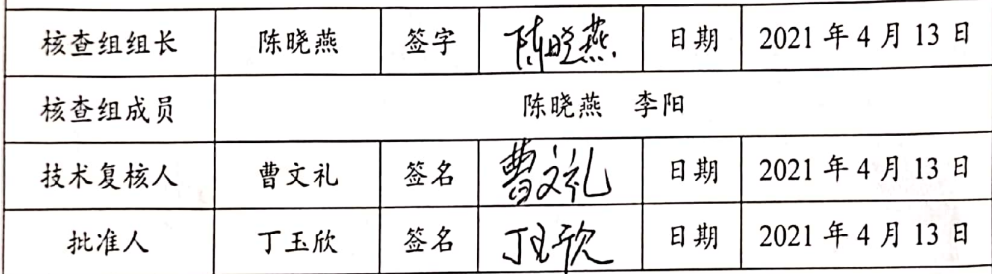 核查组组长 陈晓燕 签字 陈晓燕 日期 2021 年 4 月 13 日
核查组成员 陈晓燕 李阳
技术复核人 曹文礼 签名 曹文礼 日期 2021 年 4 月 13 日
批准人 丁玉欣 签名 丁玉欣 日期 2021 年 4 月 13 日